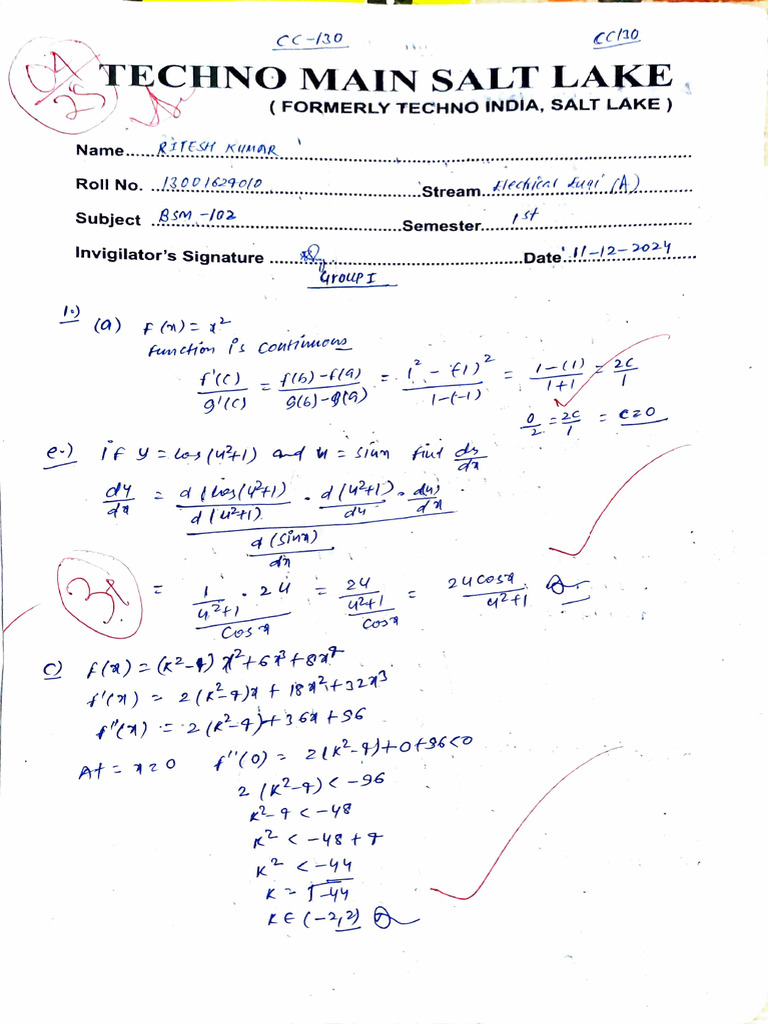 CC-130 CC130
04/25
TECHNO MAIN SALT LAKE
( FORMERLY TECHNO INDIA, SALT LAKE )
Name RITESH KUMAR
Roll No. 13001624010 Stream Electrical Engi (A)
Subject BSM-102 Semester 1st
Invigilator's Signature Date 11-12-2024
Group I
1.) (a) f(x) = x²
function is continuous
f'(c)/g'(c) = f(b)-f(a)/g(b)-g(a) = 1² - (-1)²/1-(-1) = 1-(1)/1+1 = 2c/1
0/2 = 2c/1 = c=0
e.) if y = cos(u²+1) and u = sinx find dy/dx
dy/dx = d(cos(u²+1)/d(u²+1) . d(u²+1)/du . du/dx / d(sinx)/dx
3
= 1/u²+1 . 2u / cosx = 2u/u²+1 / cosx = 2ucosx/u²+1
c) f(x) = (k²-4) x²+6x³+8x⁴
f'(x) = 2(k²-4)x + 18x²+32x³
f''(x) = 2(k²-4)+36x+96
At = x=0 f''(0) = 2(k²-4)+0+96<0
2(k²-4) < -96
k²-4 < -48
k² < -48+4
k² < -44
k = √-44
k∈(-2,2)